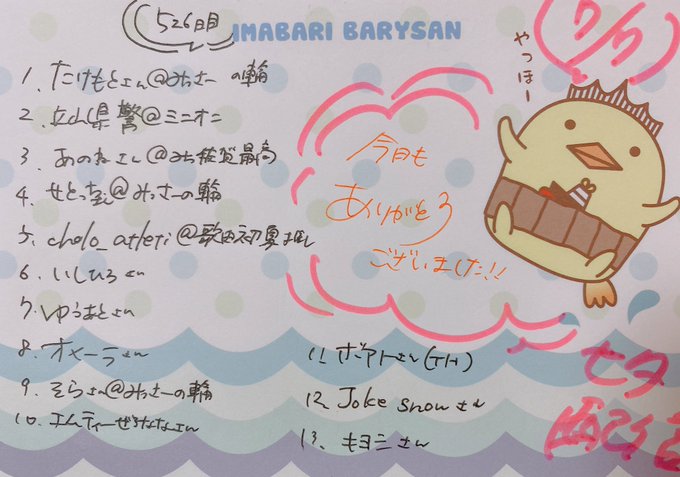 526日目
IMABARI BARYSAN
7/7
やっほー
1. たけもとさん@みっさーの輪
2. 立山県警@ミニオニ
3. あのねさん@みち佐賀最高
4. せとっちさん@みっさーの輪
5. cholo_atleti@歌田初夏推し
6. いしひろさん
7. ゆうあとさん
8. オメーラさん
9. そらさん@みっさーの輪
10. エムティーぜろななさん
11. ボアトさん(TH)
12. Joke snowさん
13. キヨミさん
今日も
ありがとう
ございました!!
七夕